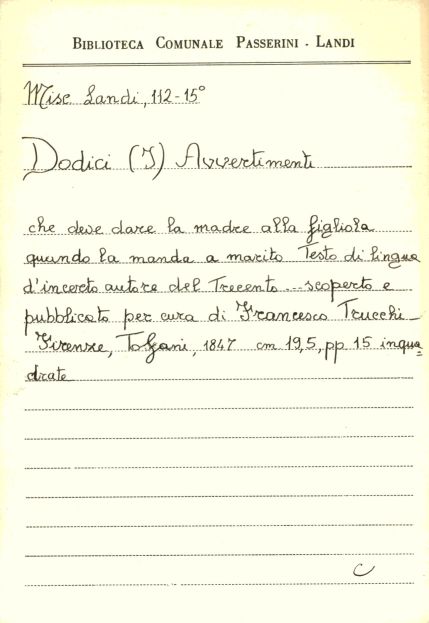 BIBLIOTECA COMUNALE PASSERINI - LANDI
Misc Landi, 112-15°
Dodici (I) Avvertimenti
che deve dare la madre alla figliola
quando la manda a marito Testo di lingua
d'incerto autore del Trecento ... scoperto e
pubblicato per cura di Francesco Trucchi -
Firenze, Tofani, 1847 cm 19,5, pp 15 inqua=
drate
C